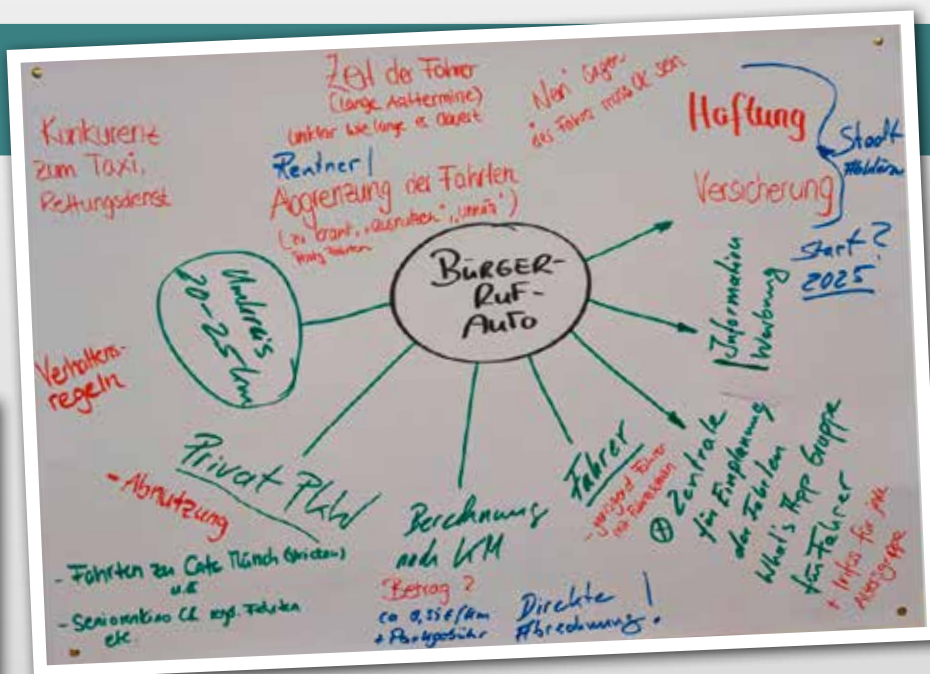 Konkurenz
zum Taxi,
Rettungsdienst
Zeit der Fahrer
(lange Arzttermine)
unklar wie lange es dauert
Rentner!
Abgrenzung der Fahrten
(zu krank, "ausnutzen", "unnütz")
"Nein" sagen
des Fahrers muss ok sein
Haftung
Versicherung
Stadt
Start?
2025
BÜRGER-
RUF-
AUTO
Umkreis
20-25 km
Verhaltens-
regeln
Information
Werbung
Privat PKW
- Abnutzung
- Fahrten zu Cafe Münch (stricken)
u.ä
- Seniorenkino
etc.
Berechnung
nach KM
Betrag?
ca
+ Parkgebühr
Direkte
Abrechnung!
Fahrer
⊕ Zentrale
für Einplanung
der Fahrten
What's App Gruppe
für Fahrer
+ Infos für jede